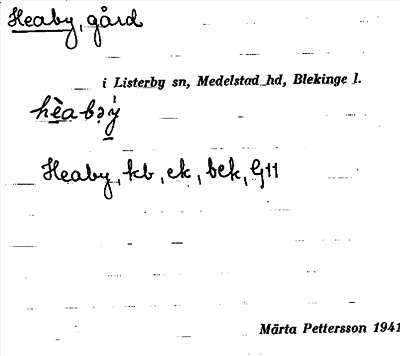 Heaby, gård
i Listerby sn, Medelstad hd, Blekinge l.
Heaby, kb, ek, bek, G11
Märta Pettersson 1941